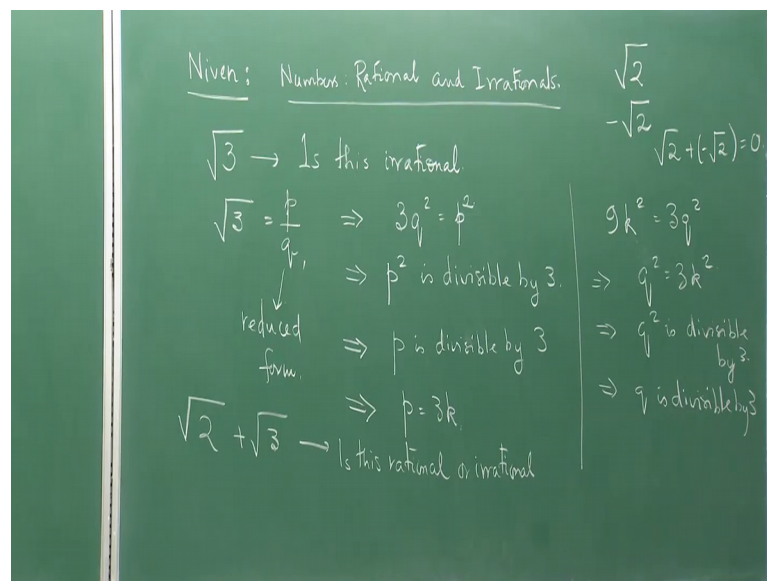 Niven: Numbers: Rational and Irrationals.
√2
-√2
√2+(-√2)=0.
√3 → Is this irrational.
√3 = p/q, ⇒ 3q² = p²
⇒ p² is divisible by 3.
reduced form.
⇒ p is divisible by 3
⇒ p = 3k
√2 + √3 → Is this rational or irrational
9k² = 3q²
⇒ q² = 3k²
⇒ q² is divisible
by 3.
⇒ q is divisible by 3